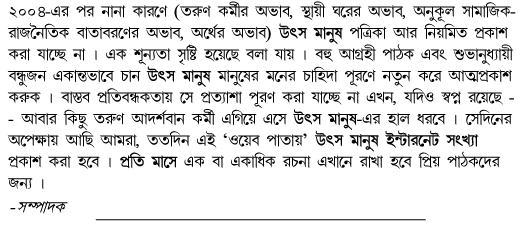 ২০০৪-এর পর নানা কারণে (তরুণ কর্মীর অভাব, স্থায়ী ঘরের অভাব, অনুকূল সামাজিক-
রাজনৈতিক বাতাবরণের অভাব, অর্থের অভাব) উৎস মানুষ পত্রিকা আর নিয়মিত প্রকাশ
করা যাচ্ছে না । এক শূন্যতা সৃষ্টি হয়েছে বলা যায় । বহু আগ্রহী পাঠক এবং শুভানুধ্যায়ী
বন্ধুজন একান্তভাবে চান উৎস মানুষ মানুষের মনের চাহিদা পূরণে নতুন করে আত্মপ্রকাশ
করুক । বাস্তব প্রতিবন্ধকতায় সে প্রত্যাশা পূরণ করা যাচ্ছে না এখন, যদিও স্বপ্ন রয়েছে -
- আবার কিছু তরুণ আদর্শবান কর্মী এগিয়ে এসে উৎস মানুষ-এর হাল ধরবে । সেদিনের
অপেক্ষায় আছি আমরা, ততদিন এই ‘ওয়েব পাতায়’ উৎস মানুষ ইন্টারনেট সংখ্যা
প্রকাশ করা হবে । প্রতি মাসে এক বা একাধিক রচনা এখানে রাখা হবে প্রিয় পাঠকদের
জন্য ।
-সম্পাদক